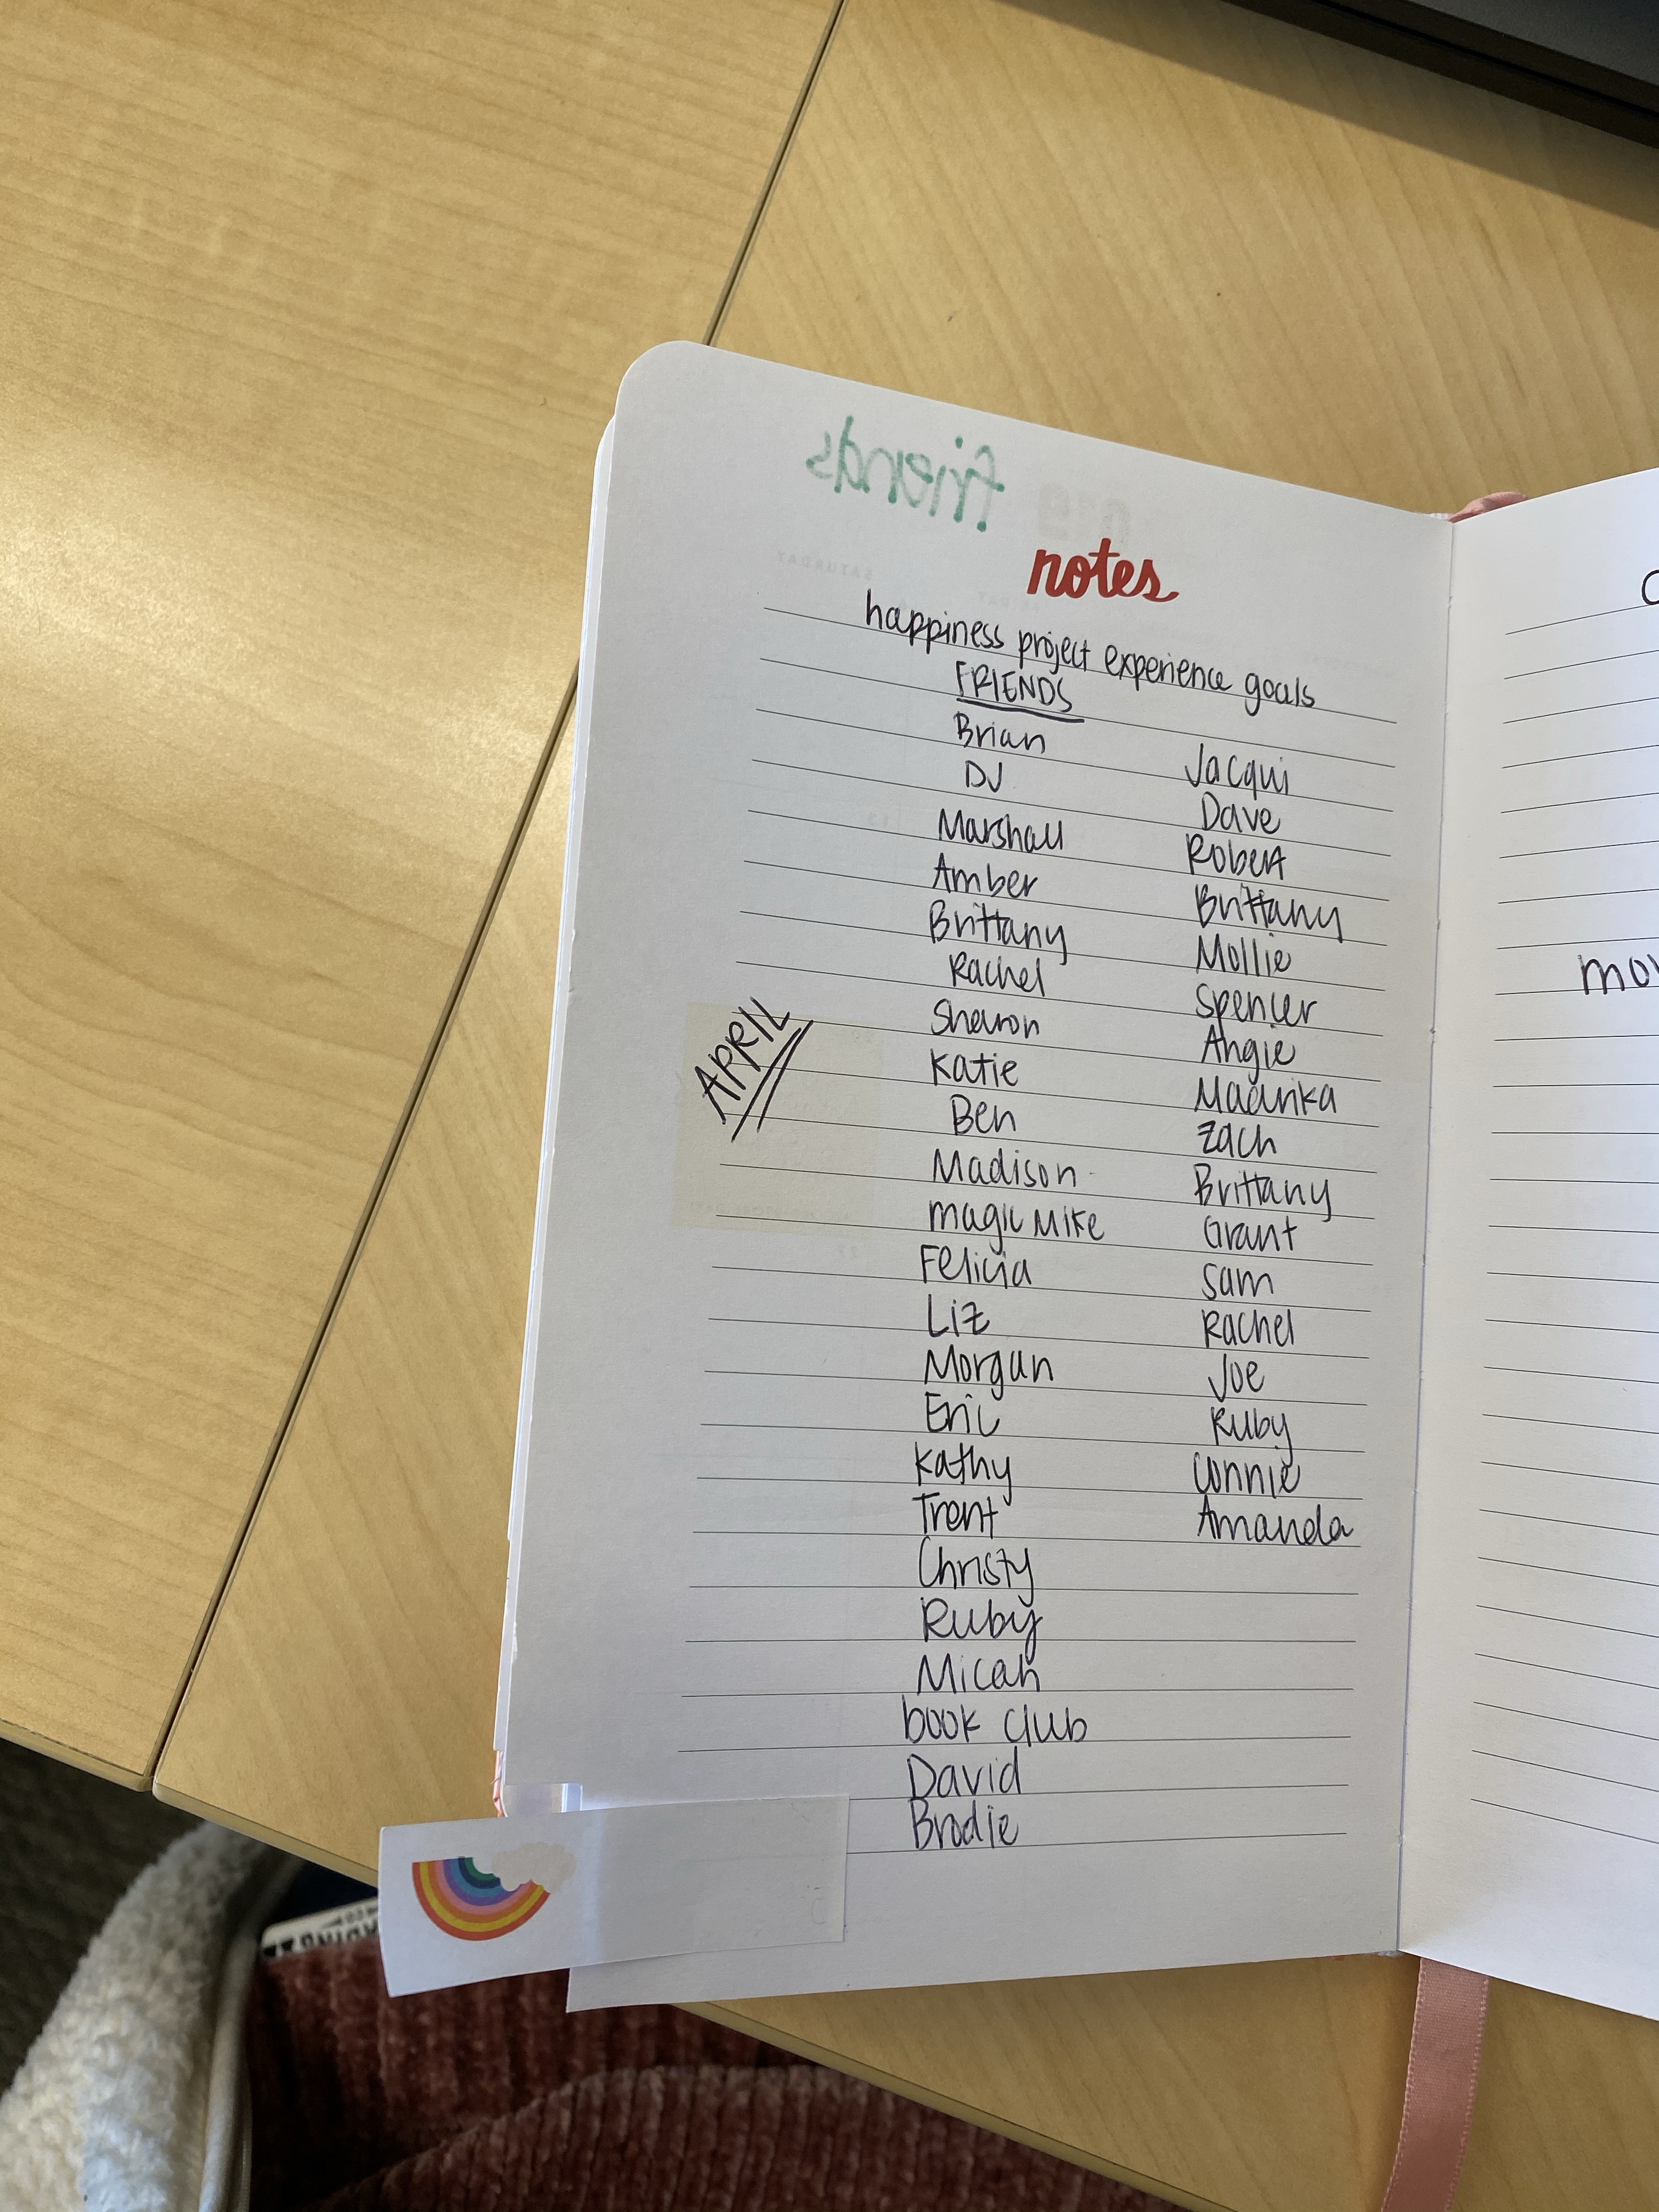 friends
notes
happiness project experience goals
FRIENDS
Brian
DJ
Marshall
Amber
Brittany
Rachel
Sharon
Katie
Ben
Madison
magic Mike
Felicia
Liz
Morgan
Eric
Kathy
Trent
Christy
Ruby
Micah
book club
David
Brodie
Jacqui
Dave
Robert
Brittany
Mollie
Spencer
Angie
Zach
Brittany
Grant
Sam
Rachel
Joe
Ruby
Connie
Amanda
APRIL
SATURDAY